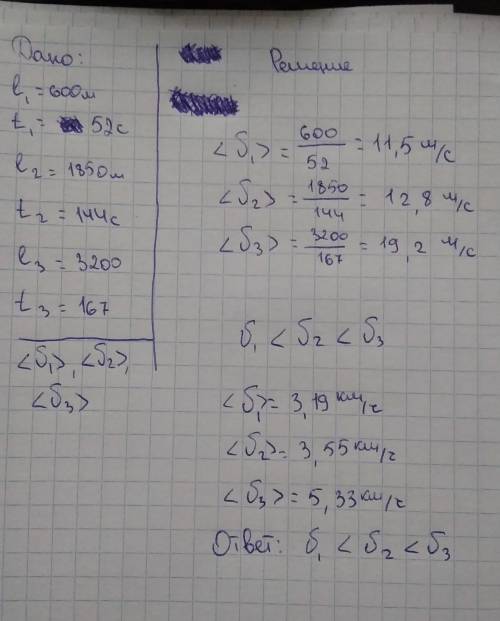 Дано:
l₁ = 600м
t₁ = 52с
l₂ = 1850м
t₂ = 144с
l₃ = 3200
t₃ = 167
<υ₁>, <υ₂>,
<υ₃>
Решение
<υ₁> = 600/52 = 11,5 м/с
<υ₂> = 1850/144 = 12,8 м/с
<υ₃> = 3200/167 = 19,2 м/с
υ₁ < υ₂ < υ₃
<υ₁> = 3,19 км/ч
<υ₂> = 3,55 км/ч
<υ₃> = 5,33 км/ч
Ответ: υ₁ < υ₂ < υ₃